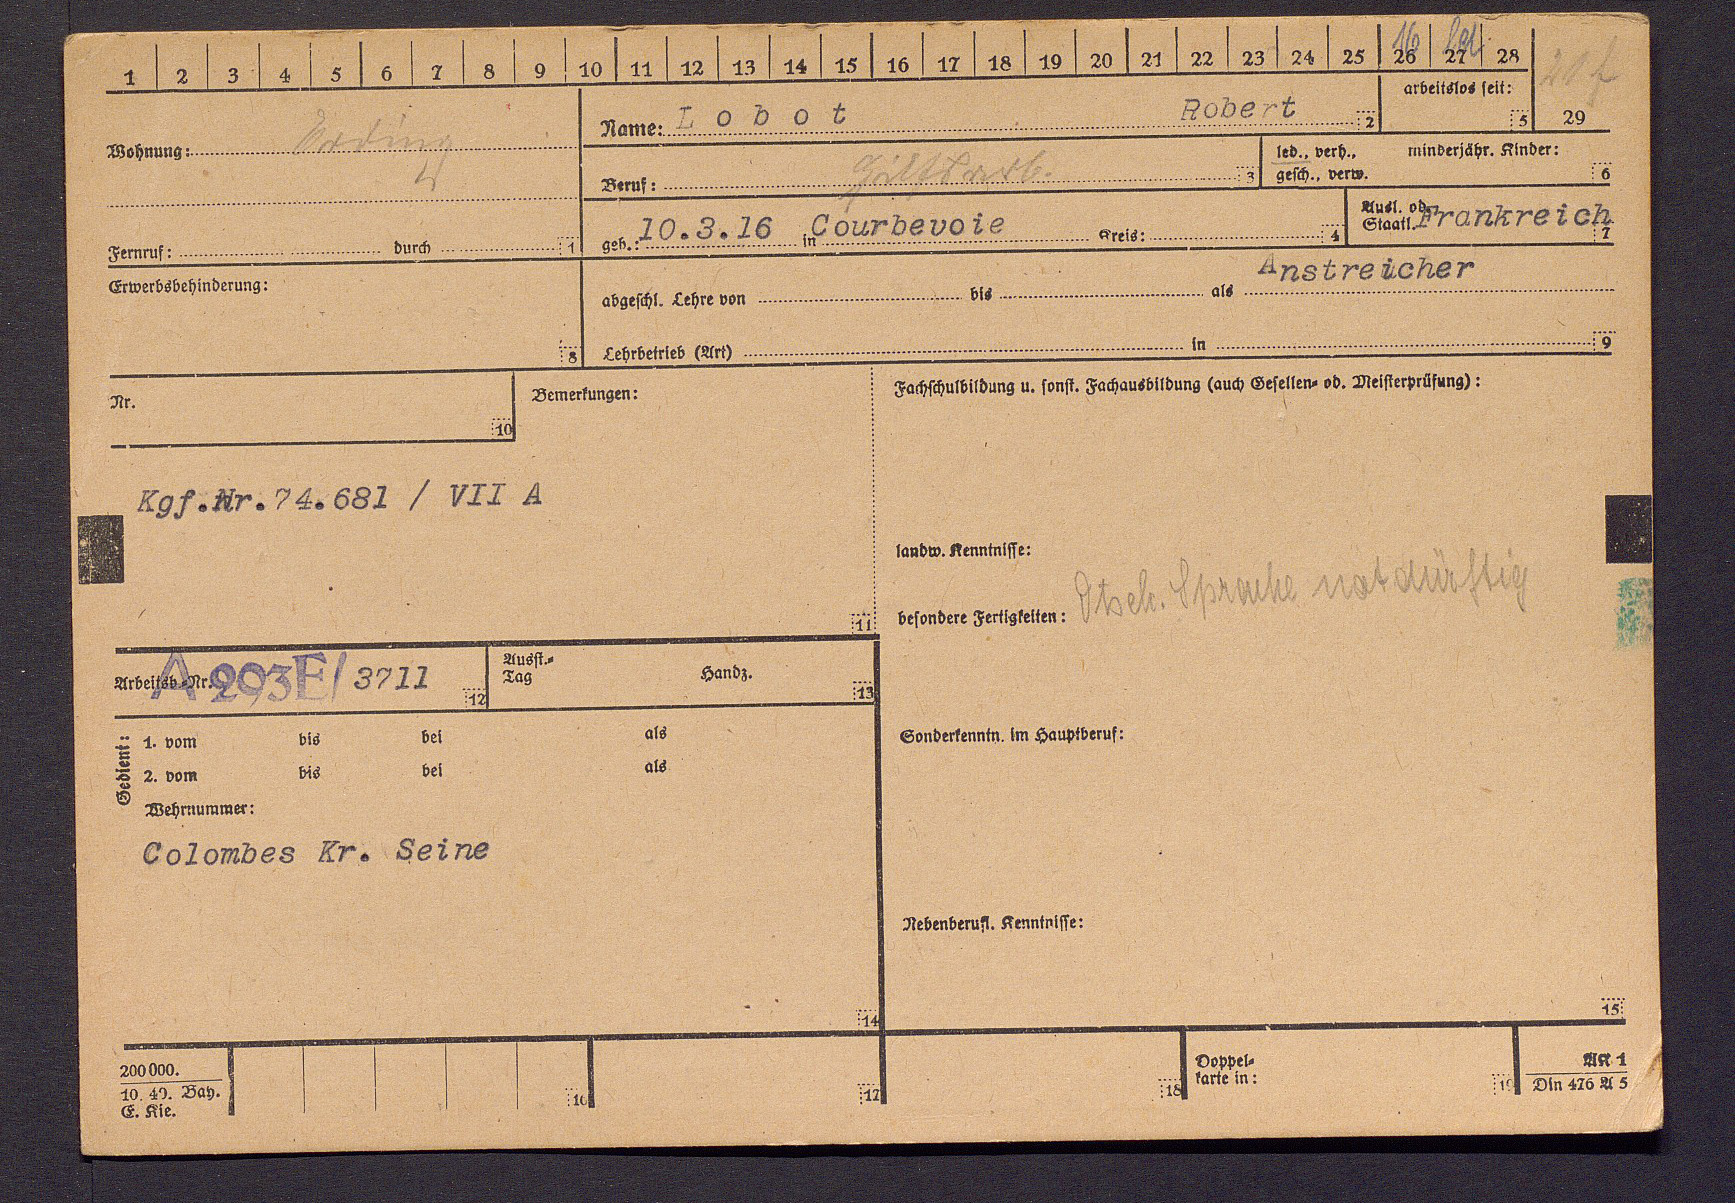 1 2 3 4 5 6 7 8 9 10 11 12 13 14 15 16 17 18 19 20 21 22 23 24 25 26 27 28
16
Wohnung: Erding
Name: Lobot Robert 2
arbeitslos seit: 5
29
Beruf: Hilfsarb. 3
led., verh., gesch., verw.
minderjähr. Kinder: 6
Fernruf: durch 1
geb.: 10.3.16 in Courbevoie Kreis: 4
Ausl. od. Staatl. Frankreich 7
Erwerbsbehinderung: 8
abgeschl. Lehre von bis als Anstreicher
Lehrbetrieb (Art) in 9
Nr. 10
Bemerkungen:
Fachschulbildung u. sonst. Fachausbildung (auch Gesellen- od. Meisterprüfung):
Kgf.Nr.74.681 / VII A
11
landw. Kenntnisse:
besondere Fertigkeiten: Dtsch. Sprache notdürftig
Arbeitsb.-Nr. A 293E/ 3711 12
Ausst.-Tag Handz. 13
Sonderkenntn. im Hauptberuf:
Gedient:
1. vom bis bei als
2. vom bis bei als
Wehrnummer:
Colombes Kr. Seine
14
Nebenberufl. Kenntnisse:
15
200 000.
10. 40. Bay.
E. Kie.
16
17
18
Doppel-
karte in: 19
AK 1
Din 476 A 5